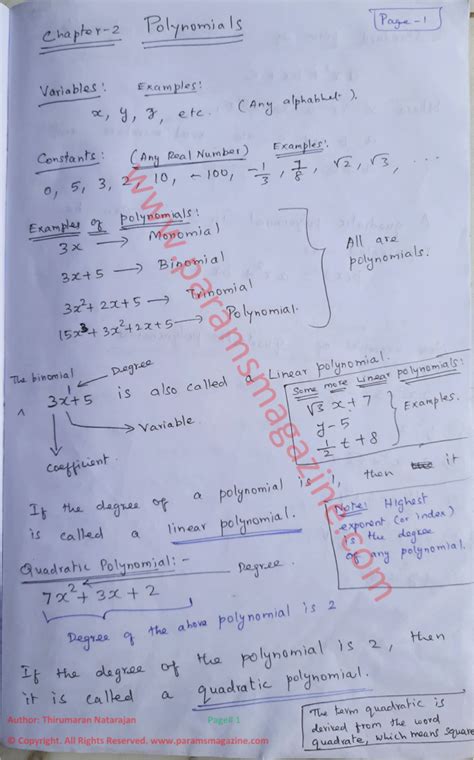 Chapter-2 Polynomials
Page-1
Variables: Examples:
x, y, z, etc. (Any alphabhet).
Constants: (Any Real Number) Examples:
0, 5, 3, 2, 10, -100, -1/3, 7/8, √2, √3, ...
Examples of polynomials:
3x → Monomial
3x+5 → Binomial
3x²+2x+5 → Trinomial
15x³+3x²+2x+5 → Polynomial.
All are
polynomials.
The binomial
Degree
3x+5 is also called a Linear polynomial.
Variable
coefficient
Some more Linear polynomials:
√3 x+7
y-5
1/2 t+8
Examples.
If the degree of a polynomial is 1, then it
is called a linear polynomial.
Note: Highest
exponent (or index)
is the degree
of any polynomial.
Quadratic Polynomial:-
Degree
7x²+3x+2
Degree of the above polynomial is 2
If the degree of the polynomial is 2, then
it is called a quadratic polynomial.
The term quadratic is
derived from the word
quadrate, which means square
Author: Thirumaran Natarajan Page# 1
© Copyright. All Rights Reserved. www.paramsmagazine.com
www.paramsmagazine.com